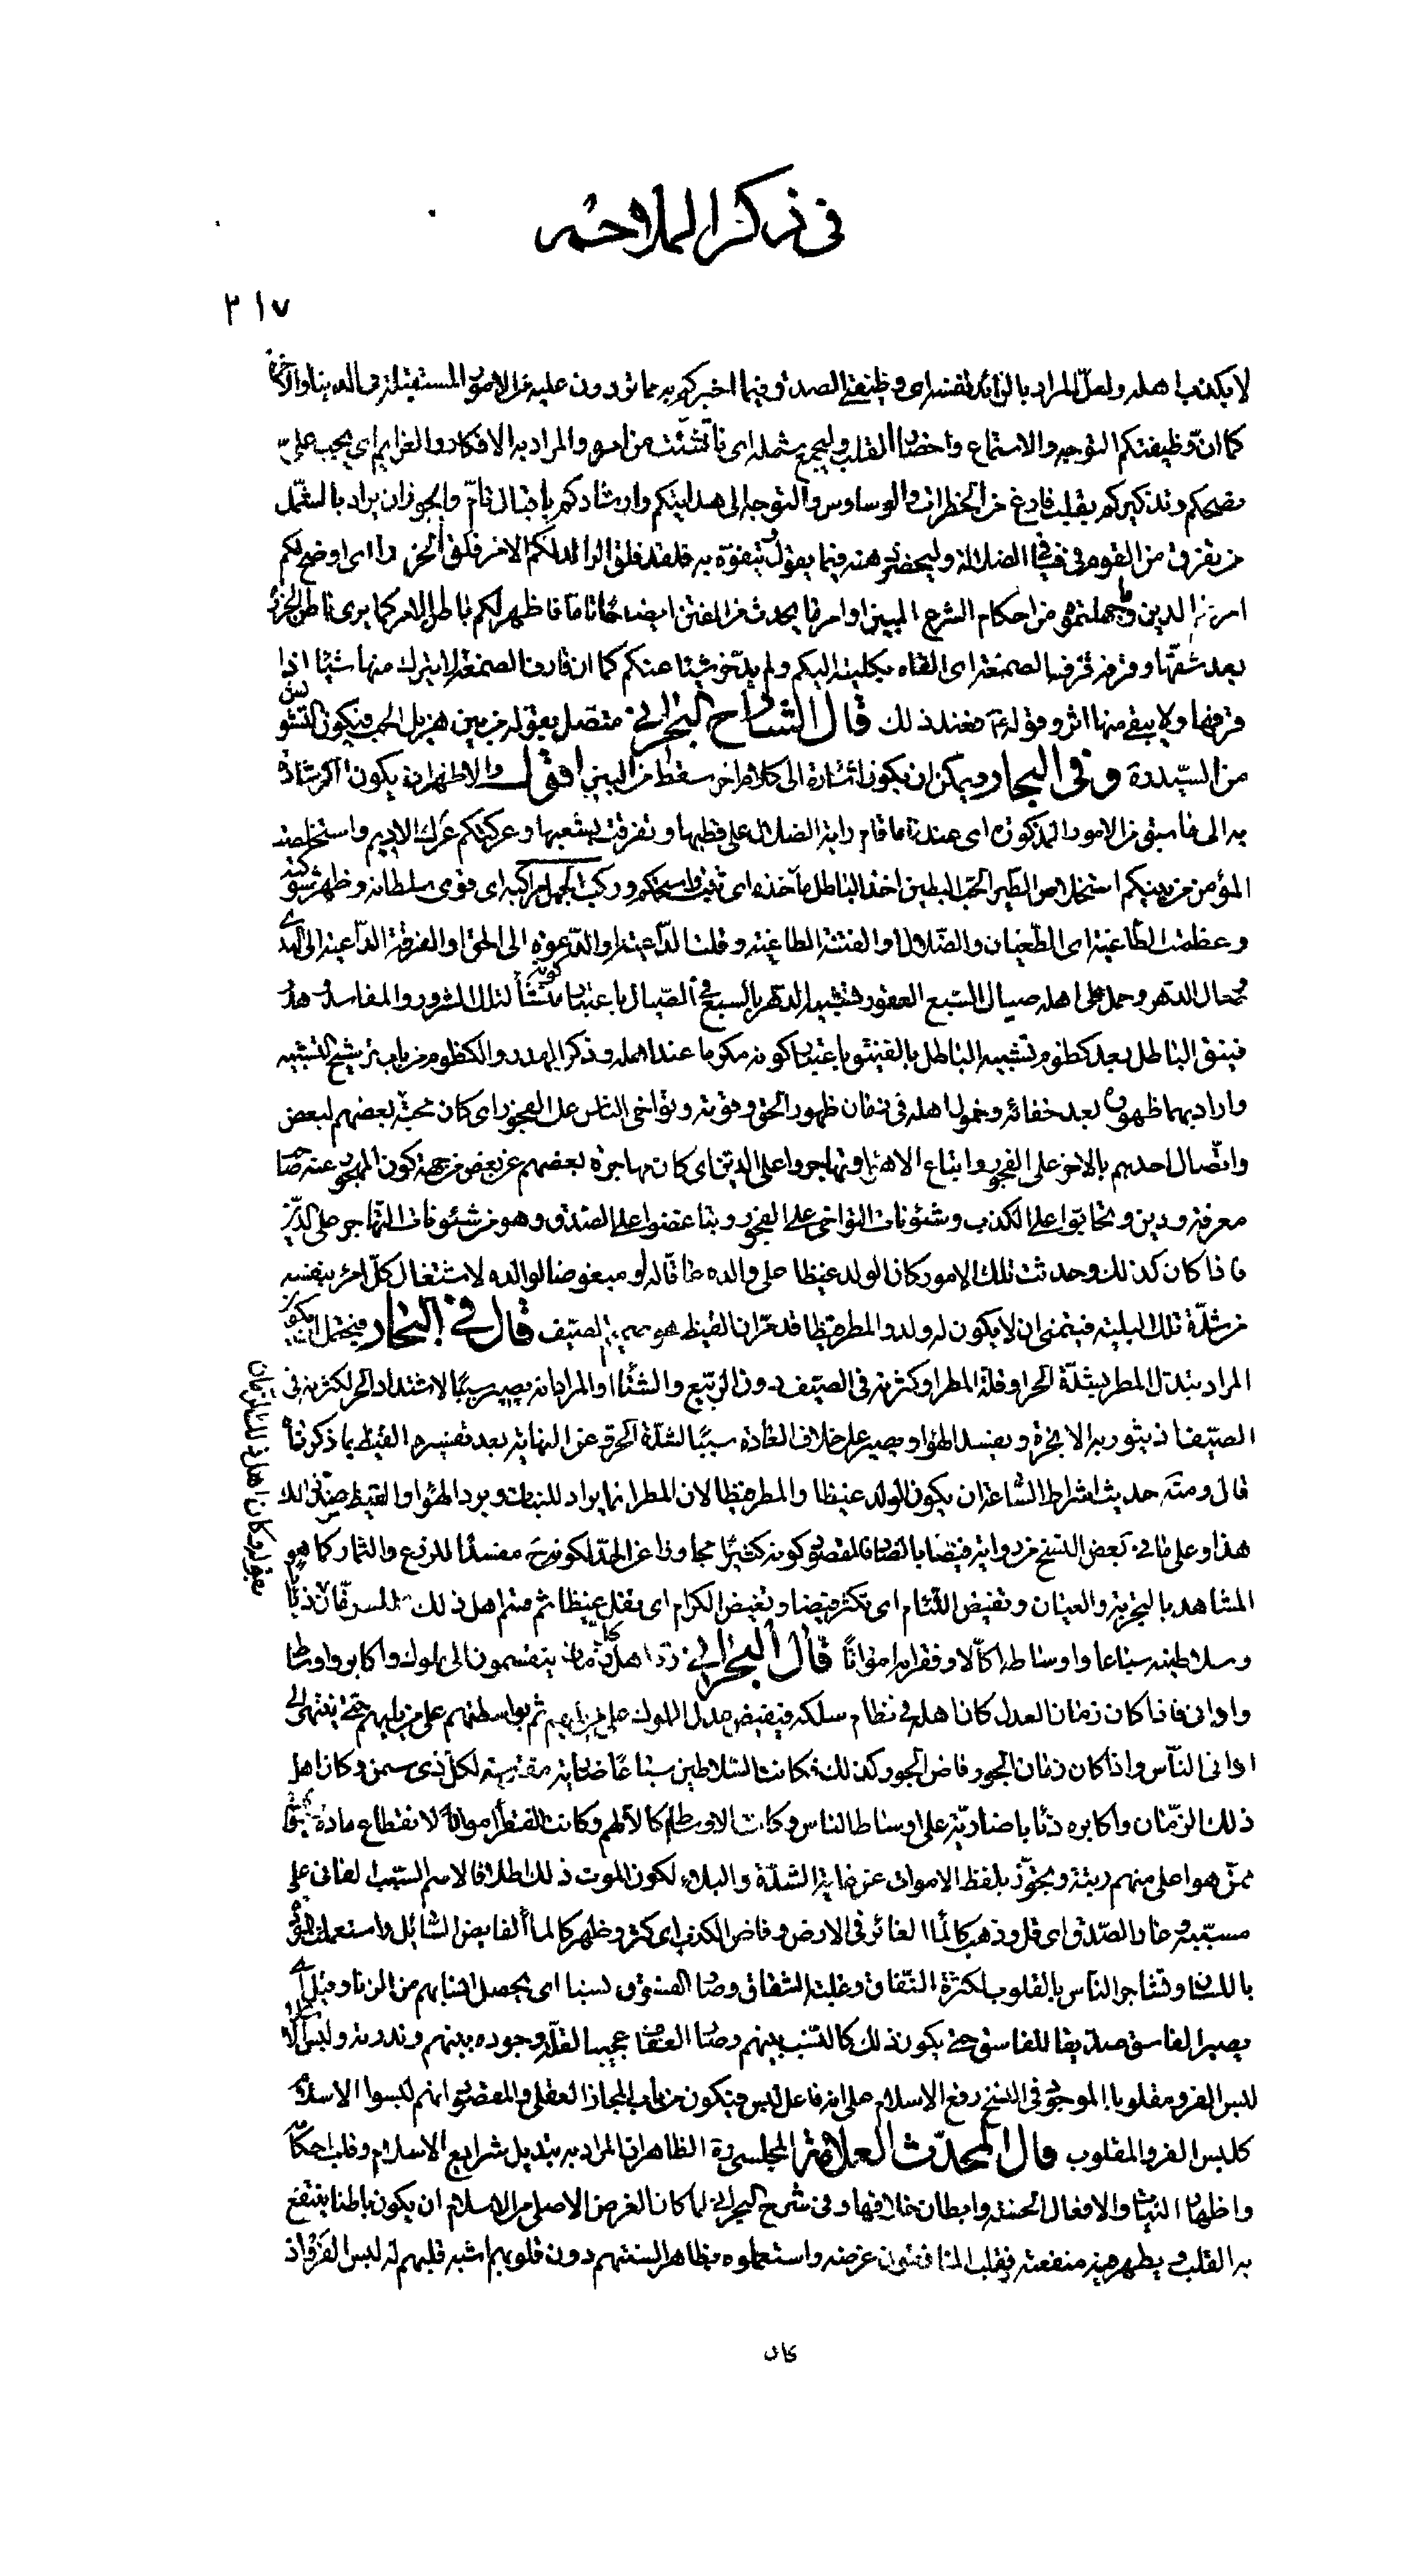 فى ذكر الملاحم
٢١٧
لا يكذب اهله ولعل المراد بالرائد نفسه اى وظيفتى الصدق فيما اخبركم به مما تردون عليه من الامور المستقبلة فى الدنيا والاخرة
كما ان وظيفتكم التوجه والاستماع واحضار القلب وليجمع شمله اى ما تشتت من امره والمراد به الافكار والعزايم اى يجب علىّ
نصحكم وتذكيركم بقلب فارغ من الخطرات والوساوس والتوجه الى هدايتكم وارشادكم باقبال تام ويجوز ان يراد بالشمل
من تفرق من القوم فى فيافى الضلالة وليحضر ذهنه فيما يقول ويتفوه به فلقد فلق الرائد لكم الامر فلق الخرزة اى اوضح لكم
امر الدين وما جهلتموه من احكام الشرع المبين او امر ما يحدث من الفتن ايضاحا تاما فاظهر لكم باطن الامر كما يرى باطن الخرزة
بعد شقها وقرفه قرف الصمغة اى القاه بكليته اليكم ولم يدخر شيئا عنكم كما ان قارف الصمغة لا يترك منها شيئا اذا
قرفها ولا يبقى منها اثر وقوله ع فعند ذلك قال الشارح البحرانى متصل بقوله من بين هزيل الحب فيكون التشويش
من السيد ره وفى البحار ويمكن ان يكون اشارة الى كلام اخر سقط من البين اقول والاظهر انه يكون اشارة
به الى ما سبق من الامور المذكورة اى عند ما قام راية الضلال على قطبها وتفرقت بشعبها وعركتكم عرك الاديم واستخلصت
المؤمن من بينكم استخلاص الطير الحب البطين اخذ الباطل مأخذه اى ثبت واستحكم وركب الجهل مراكبه اى قوى سلطانه وظهر شوكته
وعظمت الطاغية اى الطغيان والضلال او الفتنة الطاغية وقلت الداعية او الدعوة الى الحق او الفرقة الداعية الى الهدى
وصال الدهر وحمل على اهله صيال السبع العقور فتشبيه الدهر بالسبع فى الصيال باعتبار كونه منشأ لتلك الشرور والمفاسد وهدر
فنيق الباطل بعد كظوم تشبيه الباطل بالفنيق باعتبار كونه مكرما عند اهله وذكر الهدر والكظوم من باب ترشيح التشبيه
واراد بهما ظهوره بعد خفائه وخمول اهله فى زمان ظهور الحق وقوته وتواخى الناس على الفجور اى كان محبة بعضهم لبعض
واتصال احدهم بالاخر على الفجور واتباع الاهواء وتهاجروا على الدين اى كان مهاجرة بعضهم عن بعض من جهة كون المهجور عنه صاحب
معرفة ودين وتحابوا على الكذب وشئونات التواخى على الفجور وتباغضوا على الصدق وهو من شئونات التهاجر على الدين
فاذا كان كذلك وحدثت تلك الامور كان الولد غيظا على والده ... او مبغوضا لوالده لاشتغال كل امرء بنفسه
من شدة تلك البلية فيتمنى ان لا يكون له ولد والمطر قيظا قد مر ان القيظ هو صميم الصيف قال فى البحار فيحتمل ان يكون
المراد تبدل المطر بشدة الحر او قلة المطر او كثرته فى الصيف دون الربيع والشتاء او المراد انه يصير سببا لاشتداد الحر لكثرته فى
الصيف اذ يثور به الابخرة ويفسد الهواء ويصير على خلاف العادة سببا لشدة الحر وعن النهاية بعد تفسيره القيظ بما ذكرناه
قال ومنه حديث اشراط الساعة ان يكون الولد غيظا والمطر قيظا لان المطر انما يراد للنبات وبرد الهواء والقيظ ضد ذلك
هذا وعلى ما فى بعض النسخ من رواية فيضا بالضاد فالمقصود كونه كثيرا مجاوزا عن الحد لكونه ح مفسدا للزرع والثمار كما هو
المشاهد بالتجربة والعيان وتفيض اللئام اى تكثر فيضا وتغيض الكرام اى تقل غيضا ثم قسم اهل ذلك الزمان ذئابا
وسلاطينه سباعا واوساطه اكالا وفقرائه امواتا قال البحرانى ره اهل كل زمان ينقسمون الى ملوك واكابر واوساط
وادانى فاذا كان زمان العدل كان اهله فى نظام سلكه فيفيض عدل الملوك على من يليهم ثم بواسطتهم على من يليهم حتى ينتهى الى
ادانى الناس واذا كان زمان الجور فاض الجور كذلك فكانت السلاطين سباعا ضارية مفترسة لكل ذى سمن وكان اهل
ذلك الزمان واكابره ذئابا ضارية على اوساط الناس وكانت الاوساط اكالا لهم وكانت الفقراء امواتا لانقطاع مادة ...
ممن هو اعلى منهم رتبة وتجوز بلفظ الاموات عن غاية الشدة والبلاء لكون الموت غاية ذلك اطلاقا لاسم السبب الغائى على
مسببه وغار الصدق اى قل وذهب كالماء الغائر فى الارض وفاض الكذب اى كثر وظهر كالماء الفايض السائل واستعملت المودة
باللسان وتشاجر الناس بالقلوب لكثرة النفاق وغلبة الشقاق وصار الفسوق نسبا اى يحصل انسابهم من الزنا وقيل اى
يصير الفاسق صديقا للفاسق حتى يكون ذلك كالنسب بينهم وصار العفاف عجبا لقلة وجوده بينهم وندرته ولبس الاسلام
لبس الفرو مقلوبا الموجود فى النسخ رفع الاسلام على انه فاعل لبس فيكون من باب المجاز العقلى والمقصود انهم لبسوا الاسلام
كلبس الفرو المقلوب قال المحدث العلامة المجلسى ره الظاهر ان المراد به تبديل شرايع الاسلام وقلب احكامه
واظهار النيات والافعال الحسنة وابطان خلافها وفى شرح البحرانى لما كان الغرض الاصلى من الاسلام ان يكون باطنا ينتفع
به القلب ويظهر فيه منفعته فقلب المنافقون غرضه واستعملوه بظاهر السنتهم دون قلوبهم اشبه قلبهم له لبس الفرو اذ
كان
بقوله وكان اهل ذلك الزمان